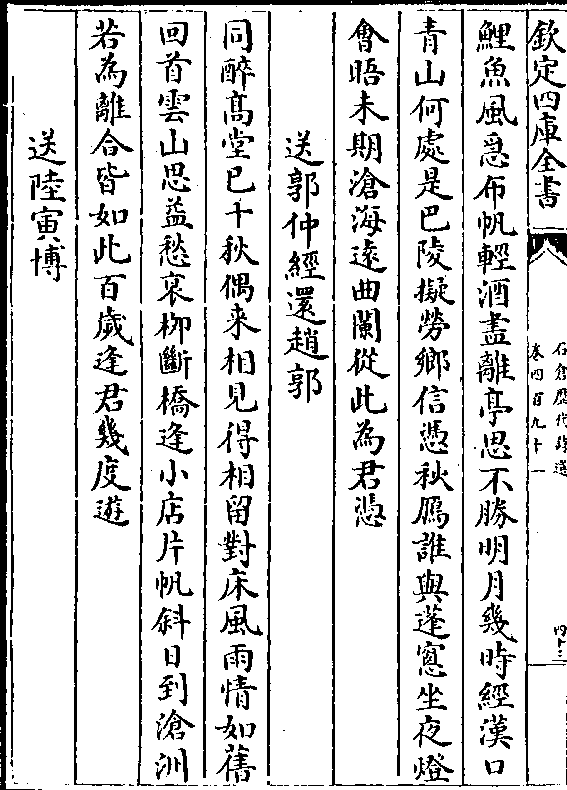 欽定四庫全書
石倉歷代詩選
卷四百九十一
四十三
鯉魚風急布帆輕酒盡離亭思不勝明月幾時經漢口
青山何處是巴陵擬勞鄉信憑秋鴈誰與蓬窻坐夜燈
會晤未期滄海遠曲闌從此為君憑
送郭仲經還趙郭
同醉髙堂已十秋偶来相見得相留對床風雨情如舊
回首雲山思益愁衰栁斷橋逢小店片帆斜日到滄洲
若為離合皆如此百歲逢君幾度遊
送陸寅博